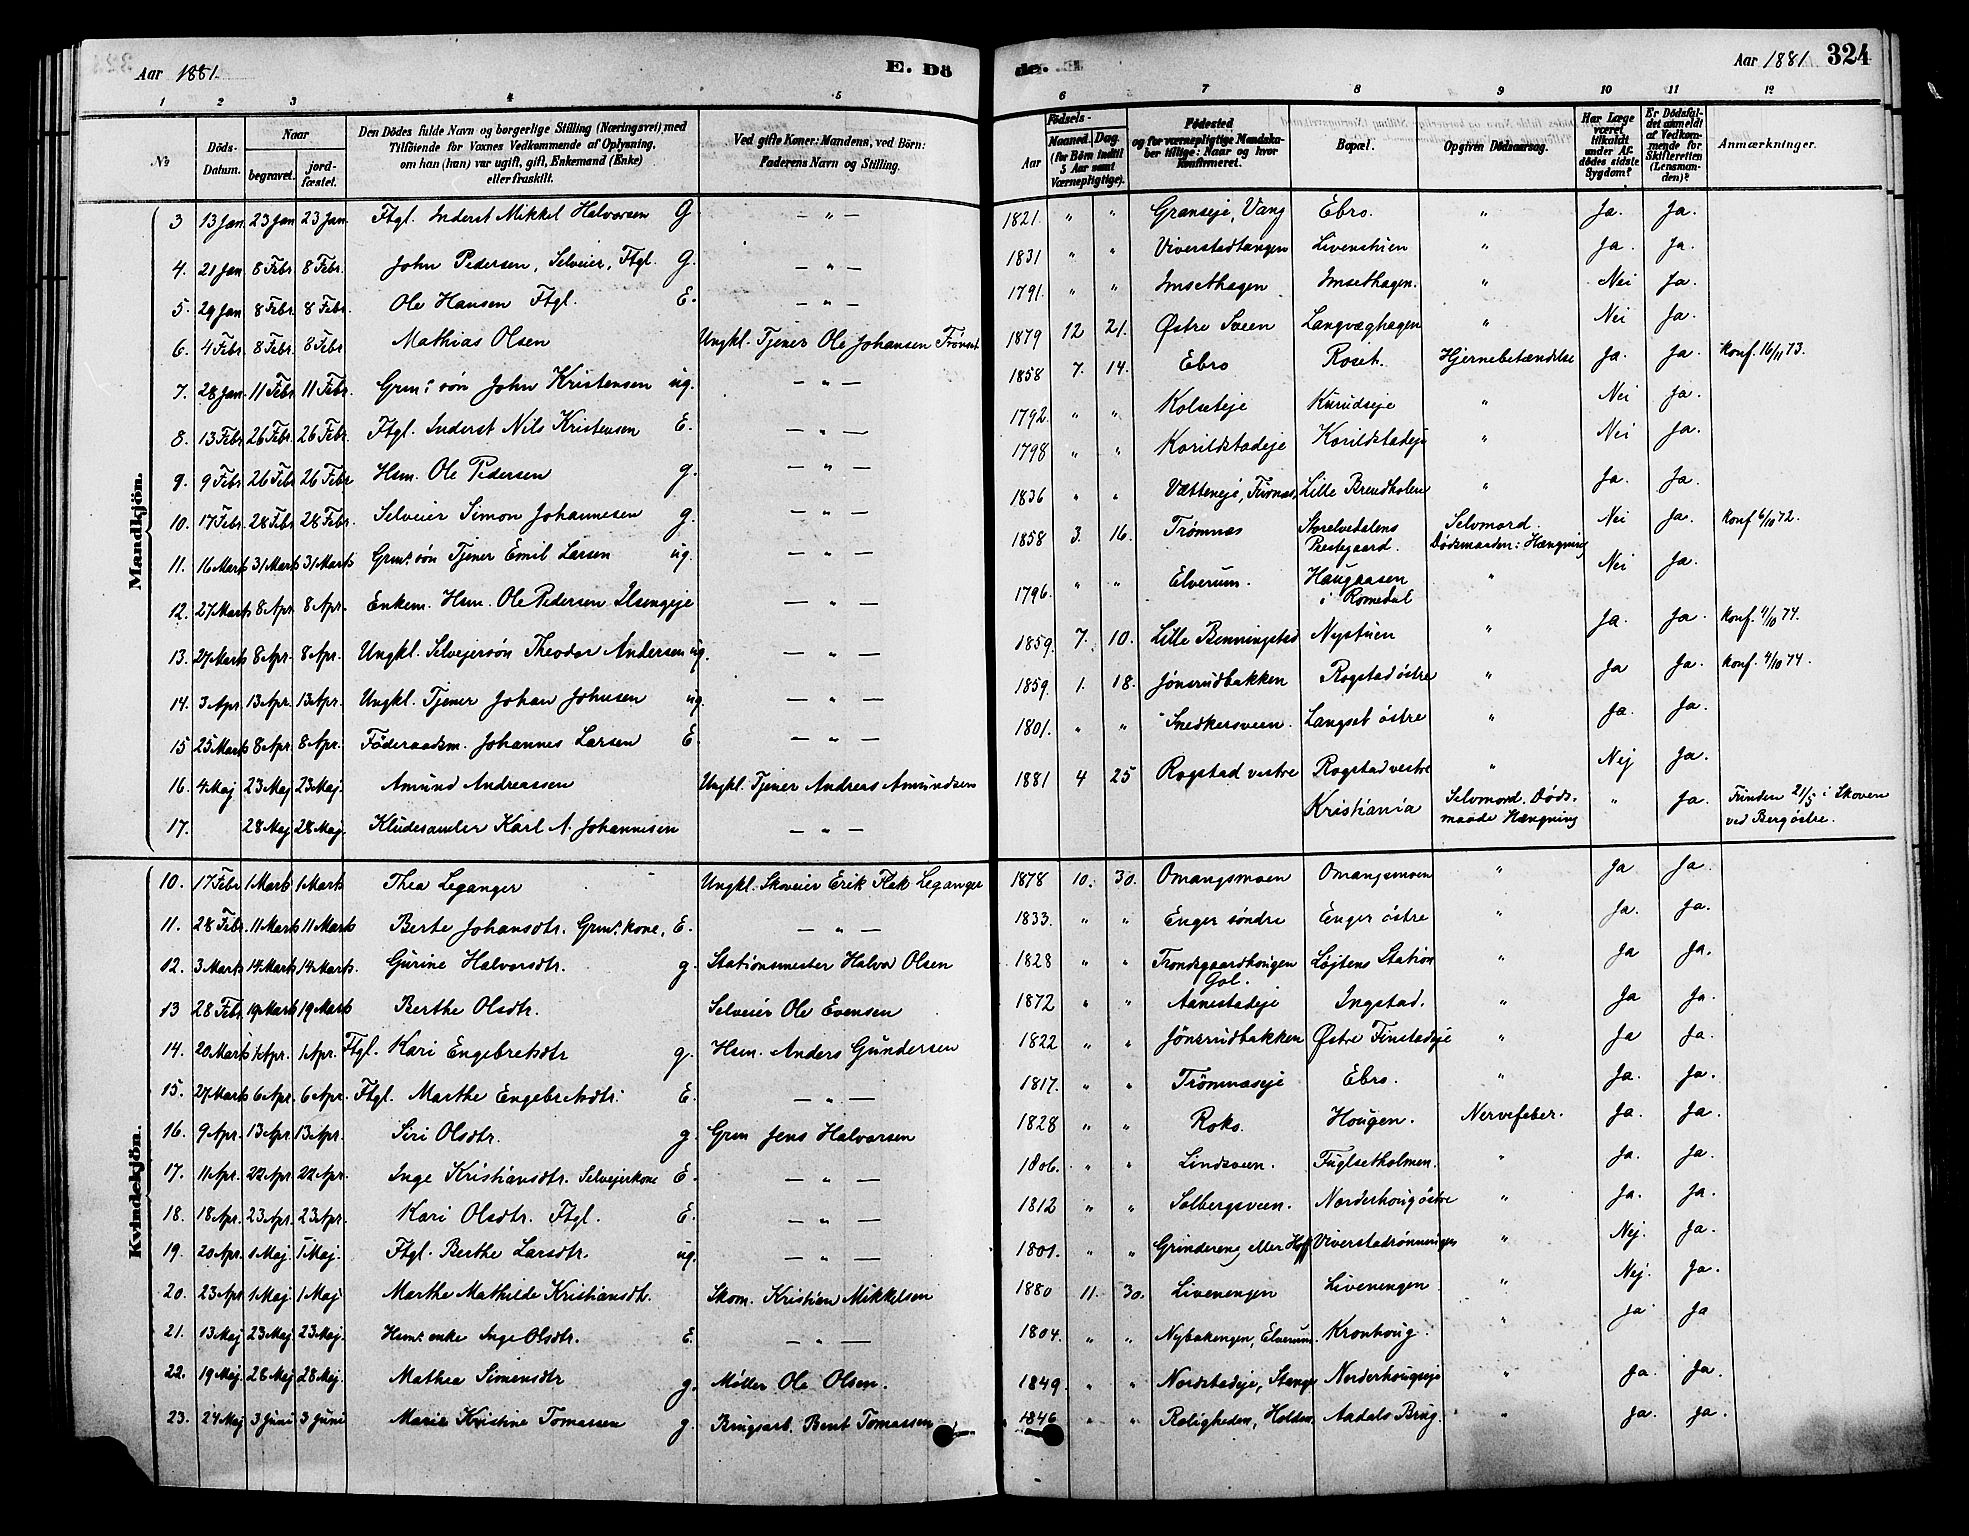 Aar 1881. E. Dö
de. Aar 1881. 324
1 2 3 4 5 6 7 8 9 10 11 12
№ Döds-Datum. Naar begravet. jordfæstet. Den Dödes fulde Navn og borgerlige Stilling (Næringsvei), med Tilföiende for Voxnes Vedkommende af Oplysning, om han (hun) var ugift, gift, Enkemand (Enke) eller fraskilt. Ved gifte Koner: Mandens, ved Börn: Faderens Navn og Stilling. Födsels- Aar Maaned. Dag. (for Börn indtil 5 Aar samt Værnepligtige). Födested og for værnepligtige Mandskaber tillige: Naar og hvor konfirmeret. Bopæl. Opgiven Dödsaarsag. Har Læge været tilkaldt under Afdödes sidste Sygdom? Er Dödsfaldet anmeldt af Vedkommende for Skifteretten (Lensmanden)? Anmærkninger.
Mandkjön.
3 13 Jan 23 Jan 23 Jan. Ftgl. Inderst Mikkel Halvorsen G — " — 1821. " " Granseje, Vang Ebro. " Ja. Ja.
4. 21 Jan 8 Febr 8 Febr. John Pedersen, Selveier, Ftgl. G. — " — 1831 " " Viverstadtangen Livenstuen " Ja. Ja.
5. 29 Jan 8 Febr 8 Febr. Ole Hansen Ftgl. E. — " — 1791. " " Imsethagen Imsethagen. " Nei Ja.
6. 4 Febr. 8 Febr. 8 Febr Mathias Olsen Ungkl. Tjener Ole Johansen Trønset 1879 12 21. Østre Sveen Langvæghagen " Nei Ja.
7. 28 Jan. 11 Febr. 11 Febr. Grm: søn John Kristensen ug. — " — 1858 7. 14. Ebro Roset. Hjernebetændelse Ja. Ja. Konf. 16/11 73.
8. 13 Febr 26 Febr. 26 Febr. Ftgl. Inderst Nils Kristensen E. — " — 1792. " " Kolseteje Kurudseje " Nei Ja.
9. 9 Febr. 26 Febr. 26 Febr Hsm. Ole Pedersen g. — " — 1798 " " Korildstadeje Korildstadeje " Nei Ja.
10. 17 Febr. 28 Febr 28 Febr. Selveier Simon Johannesen g. — " — 1836 " " Vætteneje, Furnæs, Lille Brendholen " Ja. Ja.
11. 16 Marts 31 Marts 31 Marts Grm: søn Tjener Emil Larsen ug. — " — 1858 3. 16. Trømnæs Storelvedalens Prestegaard. Selvmord. Dødsmaaden: Hængning Nei Ja. Konf 6/10 72.
12. 27 Marts 8 Apr. 8 Apr. Enkem. Hsm. Ole Pedersen Ilsengeje — " — 1796. " " Elverum. Haugaasen i Romedal " Nei Ja.
13. 27 Marts 8 Apr. 8 Apr. Ungkl. Selvejersøn Theodor Andersen ug. — " — 1859. 7. 10. Lille Benningstad Nystuen " Ja. Ja. Konf. 4/10 74.
14. 3 Apr. 13 Apr. 13 Apr. Ungkl. Tjener Johan Johnsen ug. — " — 1859. 1. 18. Jønsrudbakken Rogstad østre " Ja Ja. Konf. 4/10 74.
15 25 Marts 8 Apr. 8 Apr. Föderaadsm. Johannes Larsen E. — " — 1801. " " Snedkersveen. Langset østre " Ja. Ja.
16. 4 Maj 23 Maj 23 Maj. Amund Andreassen Ungkl. Tjener Andreas Amundsen 1881 4 25 Rogstad vestre Rogstad vestre " Nej Ja.
17. 28 Maj 28 Maj. Kludesamler Karl A. Johannesen — " — Kristiania Selvmord. Dødsmaade Hængning " Ja. Funden 21/5 i Skoven ved Berg østre.
Kvindekjön.
10. 17 Febr 1 Marts 1 Marts Thea Leganger Ungkl. Skoveier Erik Flek Leganger 1878 10. 30. Omangsmoen Omangsmoen " Ja Ja.
11. 28 Febr. 11 Marts 11 Marts Berte Johansdtr. Grm: kone, E. — " — 1833. " " Enger söndre Enger østre " Ja. Ja.
12. 3 Marts 14 Marts 14 Marts. Gurine Halvorsdtr. g. Stationsmester Halvor Olsen 1828 " " Trondsgaardhougen Gol. Løjtens Station " Ja Ja.
13 28 Febr. 19 Marts 19 Marts Berthe Olsdtr. Selveier Ole Evensen 1872 " " Aanestadeje Ingstad. " Ja Ja.
14. 20 Marts 1 Apr. 1 Apr. Ftgl. Kari Engebretsdtr g. Hsm. Anders Gundersen 1822 " " Jønsrudbakken Østre Finstadeje " Ja Ja.
15. 27 Marts 6 Apr. 6 Apr. Ftgl. Marthe Engebretsdtr. E. — " — 1817. " " Trømnæseje Ebro. " Ja. Ja.
16. 9 Apr. 13 Apr. 13 Apr. Siri Olsdtr. g. Grm Jens Halvorsen 1828 " " Roko. Hougen. Nervefeber. Ja. Ja.
17. 11 Apr. 22 Apr. 22 Apr. Inge Kristiansdtr. Selvejerkone E. — " — 1806. " " Lindsveen. Fuglsetholmen. " Ja. Ja.
18. 18 Apr. 23 Apr. 23 Apr. Kari Olsdtr. Ftgl. E. — " — 1812 " " Solbergsveen. Norderhoug østre " Ja. Ja.
19. 20 Apr. 1 Maj. 1 Maj. Ftgl. Berthe Larsdtr. ug. — " — 1801. " " Grindereng eller Hoff Viverstadrønningen " Nej. Ja.
20. 23 Apr 1 Maj. 1 Maj Marthe Mathilde Kristiansdtr. Skom. Kristian Mikkelsen 1880 11. 30. Livenengen Livenengen " Nej. Ja.
21. 13 Maj 23 Maj 23 Maj. Hsm: enke Inge Olsdtr. E. — " — 1804. " " Nybakengen, Elverum. Kronhoug. " Ja. Ja
22. 19 Maj. 28 Maj 28 Maj. Mathea Simensdtr g. Møller Ole Olsen. 1849. " " Nordstadeje, Stange Norderhougseje " Ja. Ja.
23. 24 Maj 3 Juni 3 Juni Marie Kristine Tomassen g. Brugsarb. Bent Tomassen 1846 " " Roligheden, Holden. Aadals Brug. " Ja. Ja.